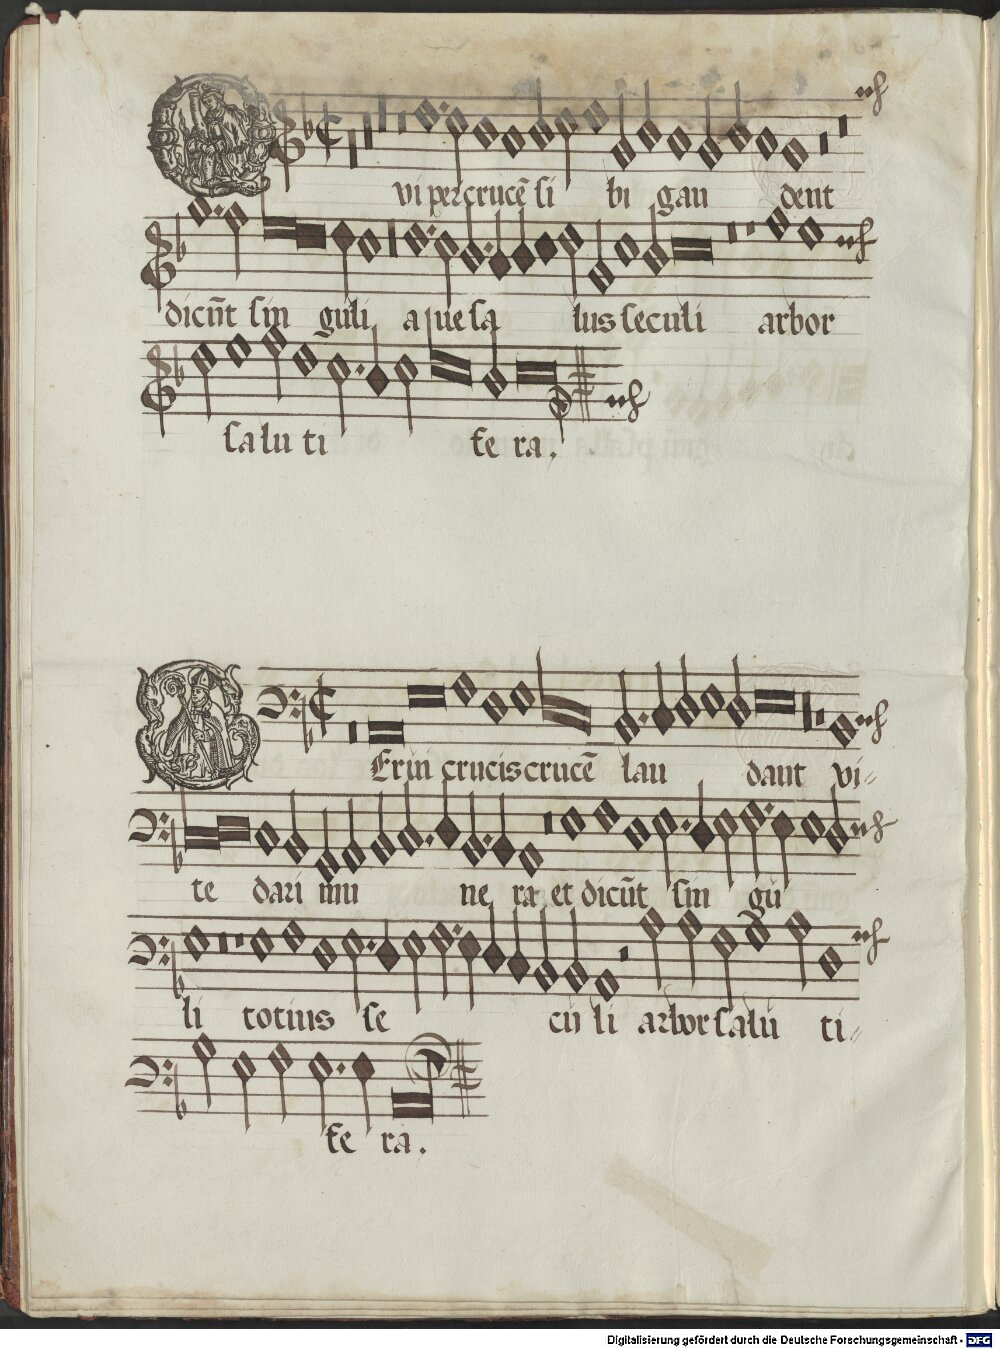 Qvi per crucē si bi gau dent
dicūt sin guli a ue sa lus seculi arbor
salu ti fe ra.
Berin crucis crucē lau dant vi-
te dari mu ne ra et dicūt sin gu
li totius se cu li arbor salu ti-
fe ra.
Digitalisierung gefördert durch die Deutsche Forschungsgemeinschaft - DFG